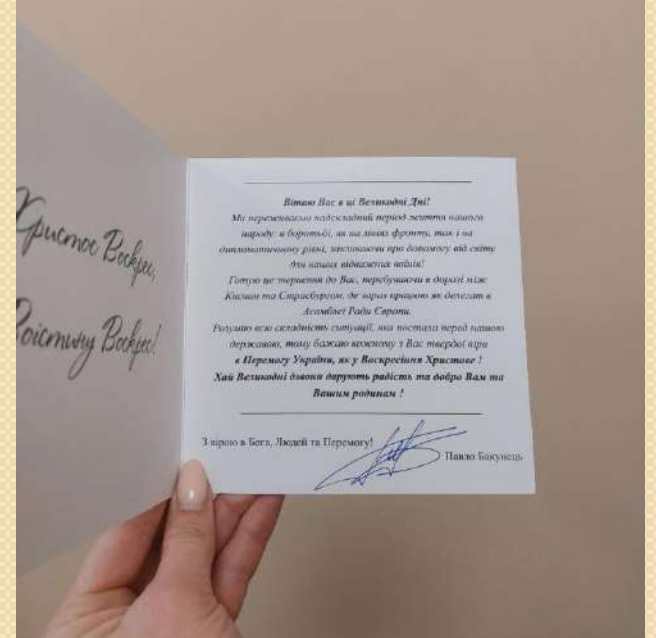 Христос Воскрес,
Воістину Воскрес!
Вітаю Вас в ці Великодні Дні!
Ми переживаємо надскладний період життя нашого
народу: в боротьбі, як на лініях фронту, так і на
дипломатичному рівні, закликаючи про допомогу від світу
для наших відважених воїнів!
Готую це звернення до Вас, перебуваючи в дорозі між
Києвом та Страсбургом, де зараз працюю як делегат в
Асамблеї Ради Європи.
Розумію всю складність ситуації, яка постала перед нашою
державою, тому бажаю кожному з Вас твердої віри
в Перемогу України, як у Воскресіння Христове !
Хай Великодні дзвони дарують радість та добро Вам та
Вашим родинам !
З вірою в Бога, Людей та Перемогу!
Павло Бакунець